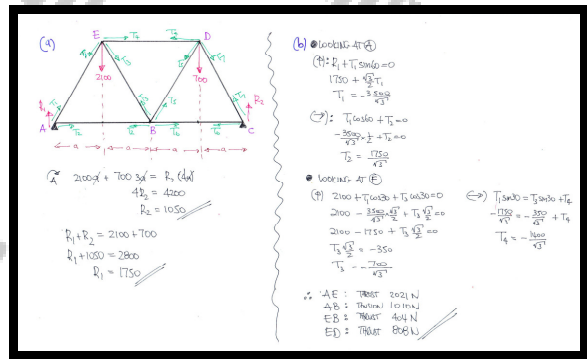 (a)
E
T₄
T₄
D
T₁
T₃
2100
700
R₁
R₂
A
T₂
T₂
B
T₆
T₆
C
a
a
a
a
2100a + 700 3a = R₂(4a)
4R₂ = 4200
R₂ = 1050
R₁ + R₂ = 2100 + 700
R₁ + 1050 = 2800
R₁ = 1750
(b)
LOOKING AT A
(↑): R₁ + T₁ sin60 = 0
1750 + √3/2 T₁
T₁ = -3500/√3
(→): T₁ cos60 + T₂ = 0
-3500/√3 × 1/2 + T₂ = 0
T₂ = 1750/√3
LOOKING AT E
(↑) 2100 + T₁ cos30 + T₃ cos30 = 0
2100 - 3500/√3 × √3/2 + T₃ √3/2 = 0
2100 - 1750 + T₃ √3/2 = 0
T₃ √3/2 = -350
T₃ = -700/√3
(→) T₁ sin30 = T₃ sin30 + T₄
-1750/√3 = -350/√3 + T₄
T₄ = -1400/√3
∴ AE : THRUST 2021 N
AB : TENSION 1010 N
EB : THRUST 404 N
ED : THRUST 808 N